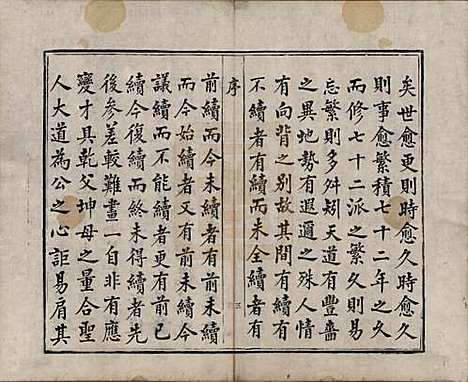 矣世愈更則時愈久
則事愈繁積七十二年之久
而修七十二派之繁久則易
忘繁則多舛矧天道有豐嗇
之異地勢有遐邇之殊人情
有向背之别故其間有續有
不續者有續而未全續者有
序
前續而今未續者有前未續
而今始續者又有前未續今
議續而不能續者更有前已
續今復續而終未得續者先
後參差較難畫一自非有應
變才具乾父坤母之量合聖
人大道為公之心詎易肩其